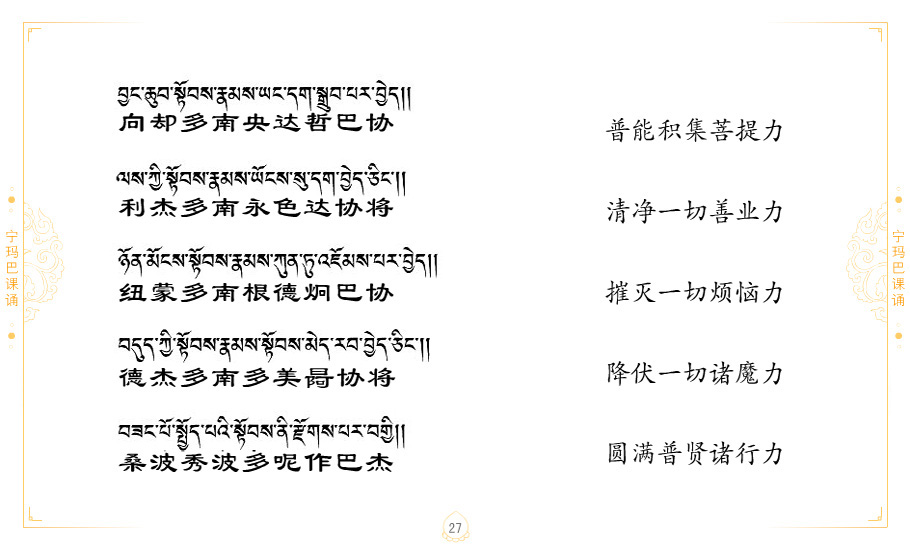 བྱང་ཆུབ་སྟོབས་རྣམས་ཡང་དག་སྒྲུབ་པར་བྱེད།།
向却多南央达哲巴协
普能积集菩提力
ལས་ཀྱི་སྟོབས་རྣམས་ཡོངས་སུ་དག་བྱེད་ཅིང་།།
利杰多南永色达协将
清净一切善业力
ཉོན་མོངས་སྟོབས་རྣམས་ཀུན་ཏུ་འཇོམས་པར་བྱེད།།
纽蒙多南根德炯巴协
摧灭一切烦恼力
བདུད་ཀྱི་སྟོབས་རྣམས་སྟོབས་མེད་རབ་བྱེད་ཅིང་།།
德杰多南多美协将
降伏一切诸魔力
བཟང་པོ་སྤྱོད་པའི་སྟོབས་ནི་རྫོགས་པར་བགྱི།།
桑波秀波多呢作巴杰
圆满普贤诸行力
宁玛巴课诵
宁玛巴课诵
27